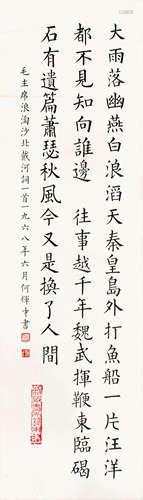 大雨落幽燕白浪滔天秦皇島外打魚船一片汪洋
都不見知向誰邊 往事越千年魏武揮鞭東臨碣
石有遺篇蕭瑟秋風今又是換了人間
毛主席浪淘沙北戴河詞一首一九六八年六月何輝幸書